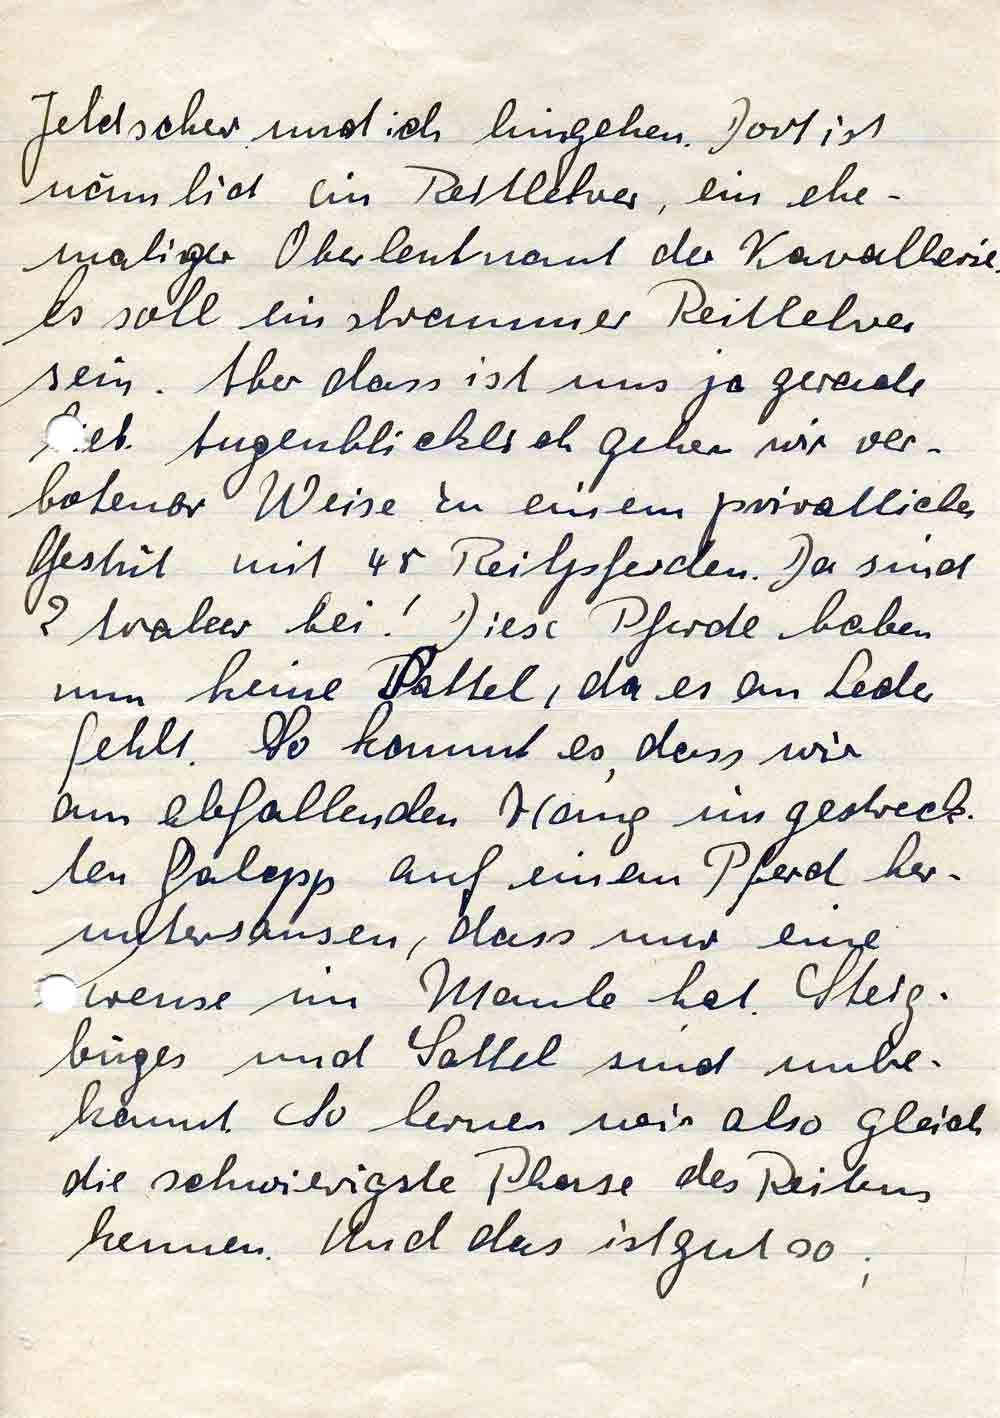 Feldscher und ich hingehen. Dort ist
nämlich ein Reitlehrer, ein ehe-
maliger Oberleutnant der Kavallerie.
Es soll ein strammer Reitlehrer
sein. Aber dass ist uns ja gerade
lieb. Augenblicklich gehen wir ver-
botener Weise zu einem privatlichen
Gestüt mit 48 Reitpferden. Da sind
2 Araber bei! Diese Pferde haben
nun keine Sattel, da es an Leder
fehlt. So kommt es, dass wir
am abfallenden Hang im gestreck-
ten Galopp auf einem Pferd her-
untersausen, dass nur eine
Trense im Maule hat. Steig-
bügel und Sattel sind unbe-
kannt. So lernen wir also gleich
die schwierigste Phase des Reitens
kennen. Und das ist gut so,